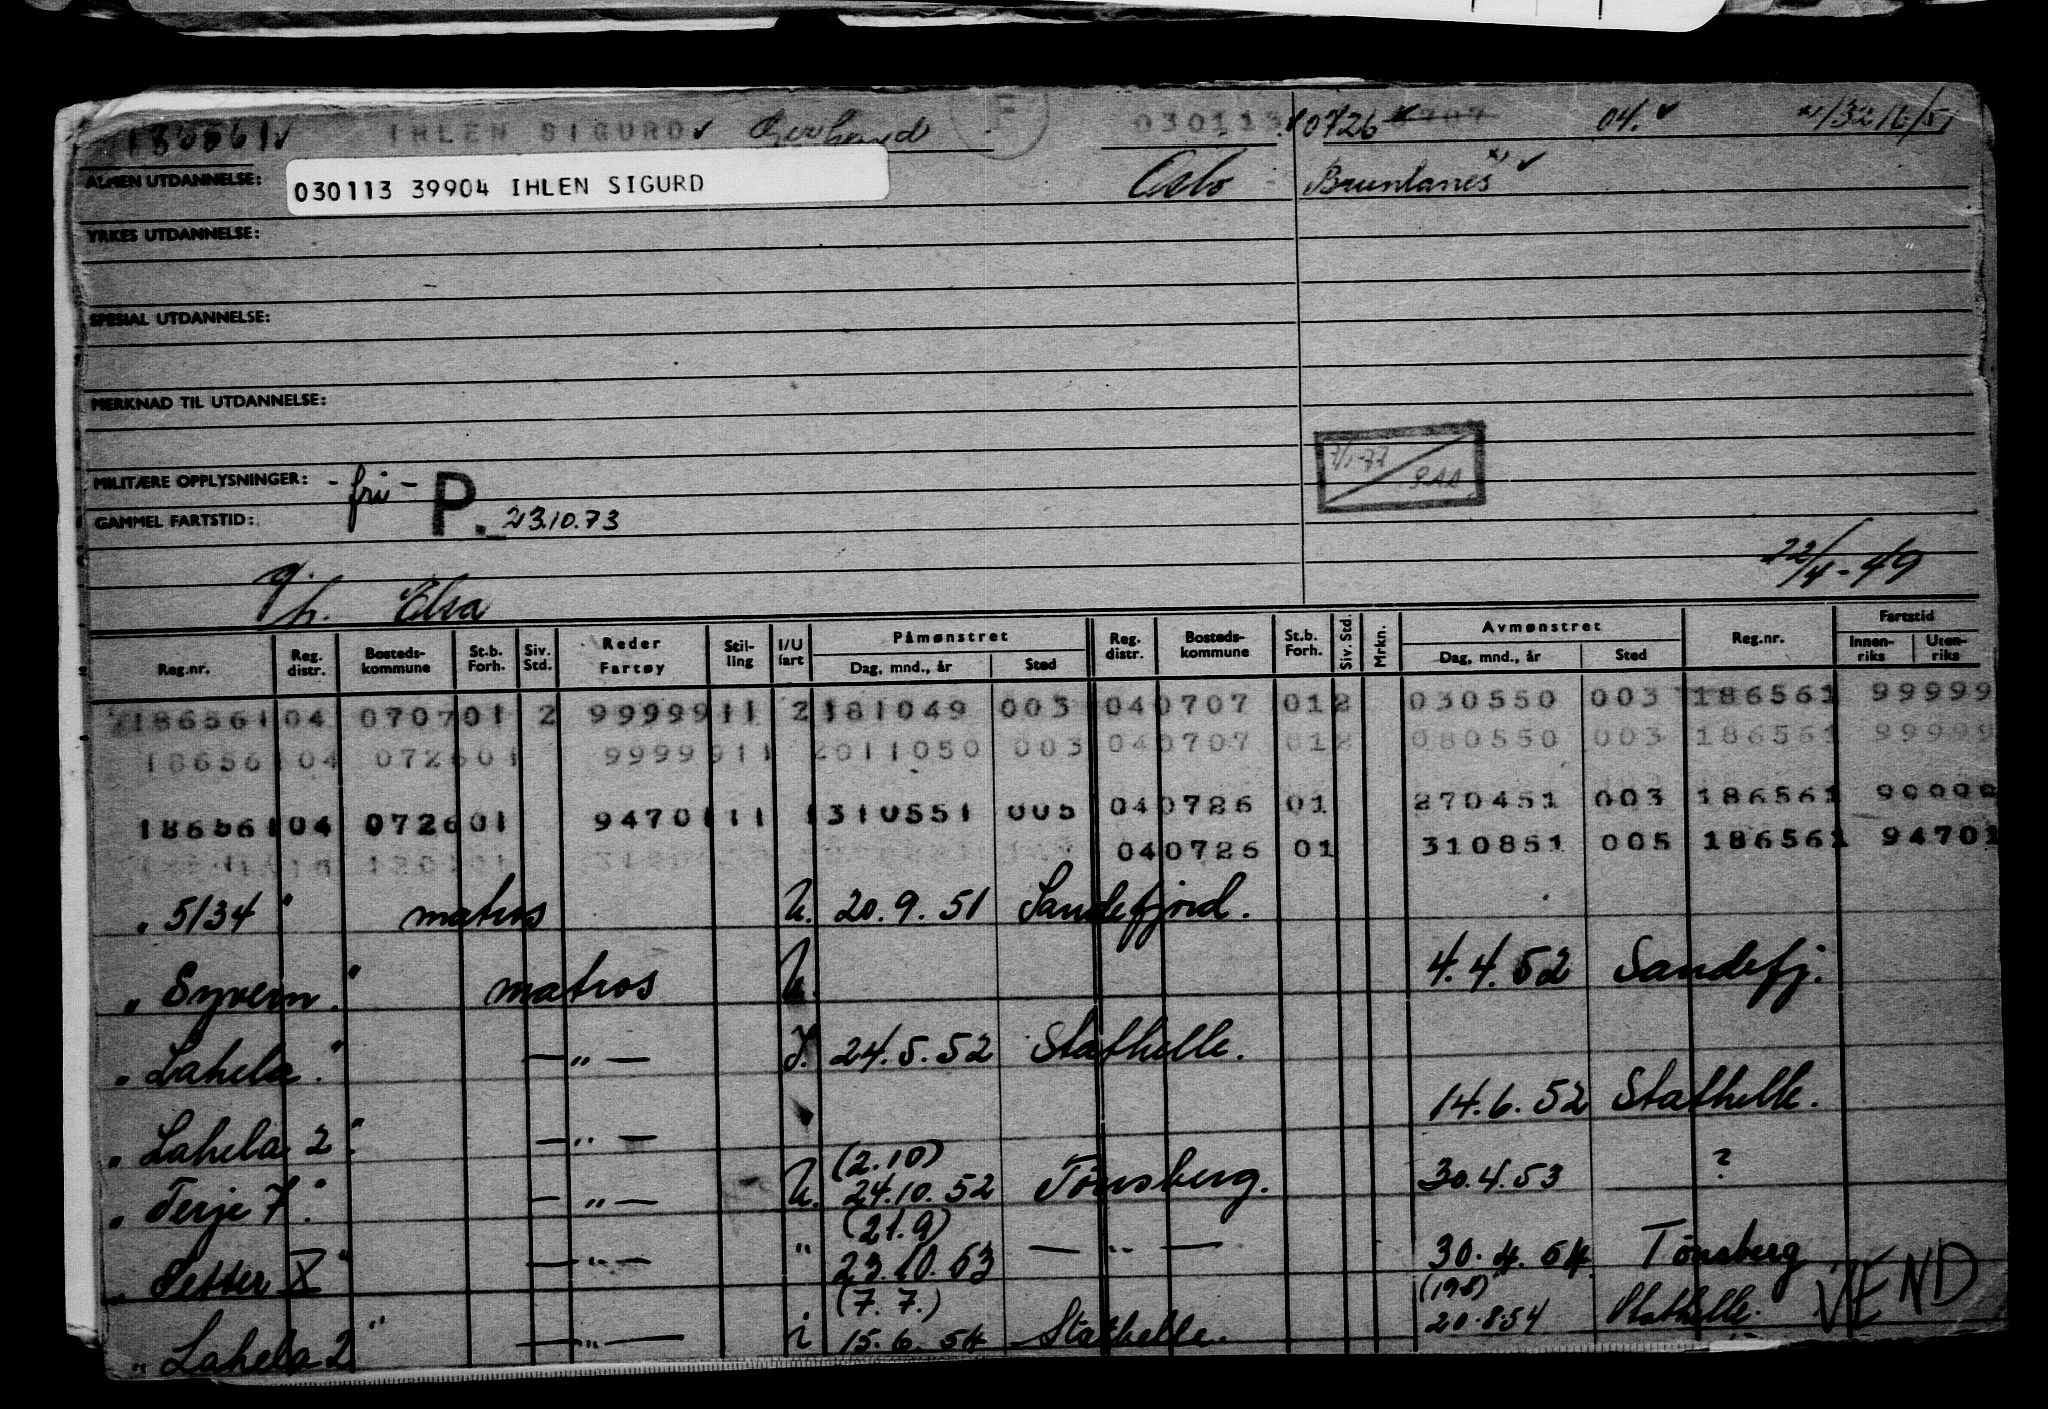 186561 IHLEN SIGURD Gerhard F 030113 0726 0707 04.
ALMEN UTDANNELSE: 030113 39904 IHLEN SIGURD Oslo Brunlanes x)
YRKES UTDANNELSE:
SPESIAL UTDANNELSE:
MERKNAD TIL UTDANNELSE:
MILITÆRE OPPLYSNINGER: - fri - P.
GAMMEL FARTSTID: 23.10.73
22/4-49
g.
h. Elsa
Reg.nr. Reg. distr. Bosteds- kommune St.b. Forh. Siv. Std. Reder Fartøy Stil- ling I/U fart Påmønstret Dag, mnd., år Sted Reg. distr. Bosteds- kommune St.b. Forh. Siv. Std. Mrkn. Avmønstret Dag, mnd., år Sted Reg.nr. Fartstid Innen- riks Uten- riks
186561 04 0707 01 2 99999 11 2 181049 003 04 0707 01 2 030550 003 186561 99999
186561 04 0726 01 99999 11 2 011050 003 04 0707 01 2 080550 003 186561 99999
04 0726 01 270451 003 186561 99999
186561 04 0726 01 94701 11 1 310551 005
04 0726 01 310851 005 186561 94701
" 5134 " matros U. 20.9.51 Sandefjord.
" Syvern " matros U. 4.4.52 Sandefj.
" Lahela " — " — I. 24.5.52 Stathelle.
" Lahela 2 " — " — 14.6.52 Stathelle.
" Terje 7 " — " — U. (2.10) 24.10.52 Tönsberg. 30.4.53 ?
" Petter X " — " — " (21.9) 23.10.53 — " — 30.4.54 Tönsberg
" Lahela 2 " — " — i (7.7.) 15.6.54 Stathelle. (19.8) 20.8.54 Stathelle.
VEND